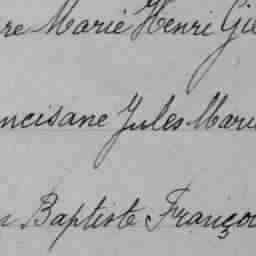 re Marie Henri Gil
ncisane Jules Marie
n Baptiste Françoi